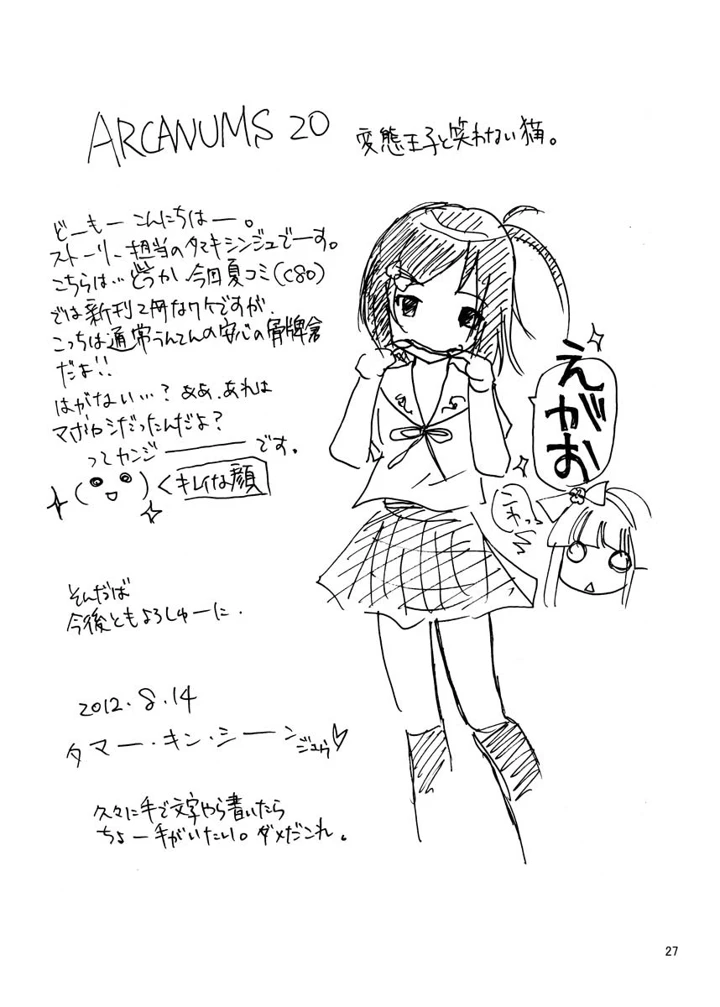 ARCANUMS 20
変態王子と笑わない猫。
どーもー こんにちはー。
ストーリー担当のタマキシンジュでーす。
こちらは…どうか、今回夏コミ(C80)
では新刊2冊なワケですが、
こっちは通常うんてんの安心の骨牌倉
だよ!!
はがない…? ああ、あれは
マボロシだったんだよ?
ってカンジーーーです。
キレイな顔
えがお
こわっ
そんだば
今後ともよろしゅーに.
2012.8.14
タマー・キン・シーン
ジュゥ♡
久々に手で文字やら書いたら
ちょー手がいたい。ダメだこれ。
27